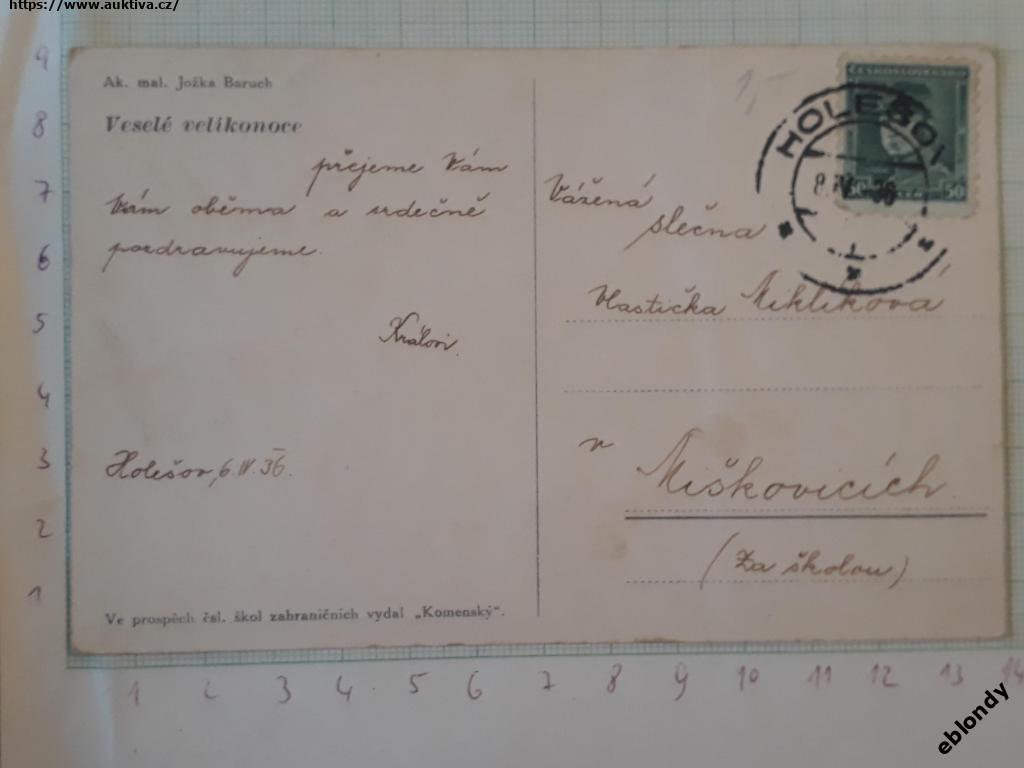 https://www.auktiva.cz/
Ak. mal. Jožka Baruch
Veselé velikonoce
přejeme Vám
Vám oběma a srdečně
pozdravujeme.
Královi.
Holešov, 6.IV.36.
Ve prospěch čsl. škol zahraničních vydal „Komenský“.
1,-
ČESKOSLOVENSKO
50
50
HOLEŠOV
8.IV.36
1
Vážená
slečna
Vlastička Miklíková
v
Miškovicích.
(Za školou)
9
8
7
6
5
4
3
2
1
1 2 3 4 5 6 7 8 9 10 11 12 13 14
eblondy